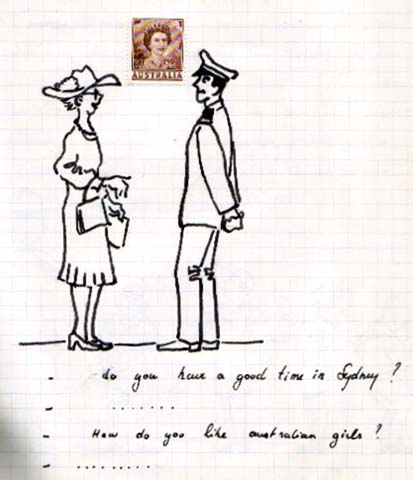 AUSTRALIA
- do you have a good time in Sydney?
- .......
- How do you like australian girls?
- .........